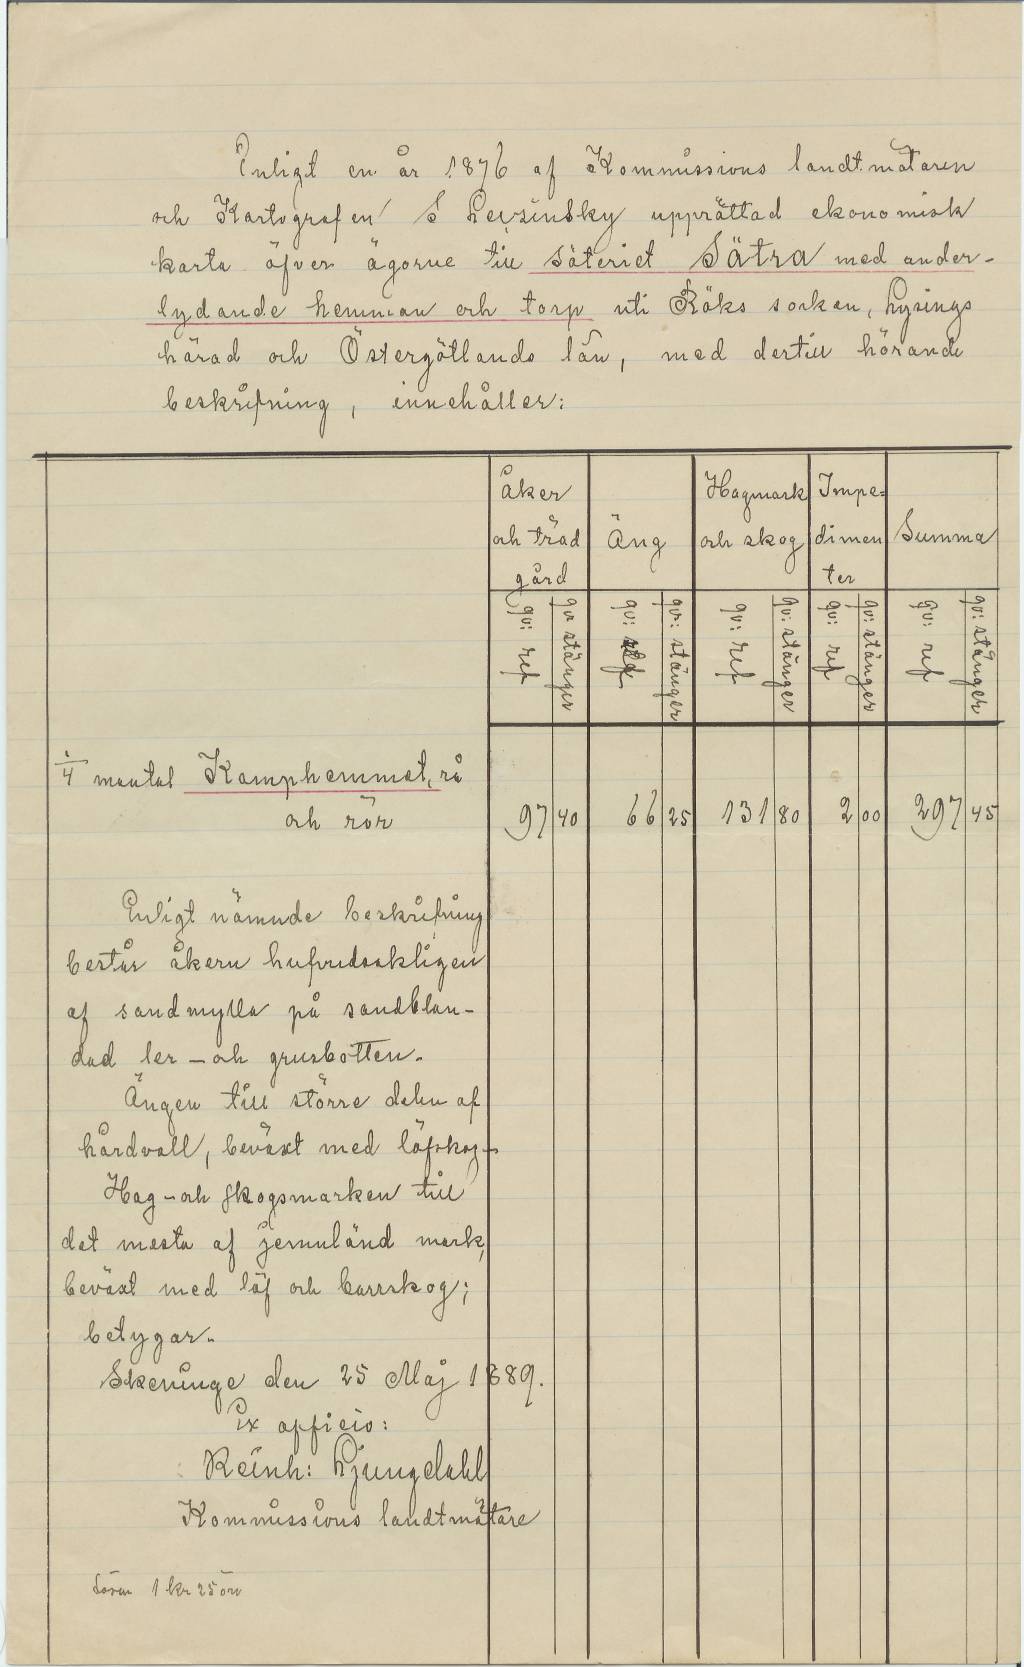 Enligt en år 1876 af Kommissions landtmätaren
och Kartografen S Levsinsky upprättad ekonomisk
karta öfver ägorne till säteriet Sätra med under-
lydande hemman och torp uti Röks socken, Lysings
härad och Östergötlands län, med dertill hörande
beskrifning, innehåller:
Åker och träd gård
Äng
Hagmark och skog
Impe= dimen ter
Summa
qv: ref qv stänger qv: ref qv: stänger qv: ref qv: stänger qv: ref qv: stänger qv: ref qv: stänger
1/4 mantal Kamphemmet, rå
och rör 97 40 66 25 131 80 2 00 297 45
Enligt nämnde beskrifning
består åkern hufvudsakligen
af sandmylla på sandblan-
dad ler - och grusbotten.
Ängen till större delen af
hårdvall, beväxt med löfskog -
Hag - och skogsmarken till
det mesta af jemnländ mark,
beväxt med löf och barrskog;
betygar.
Skeninge den 25 Maj 1889.
Ex officio:
Reinh: Ljungdahl
Kommissions landtmätare
Lösen 1 kr 25 öre